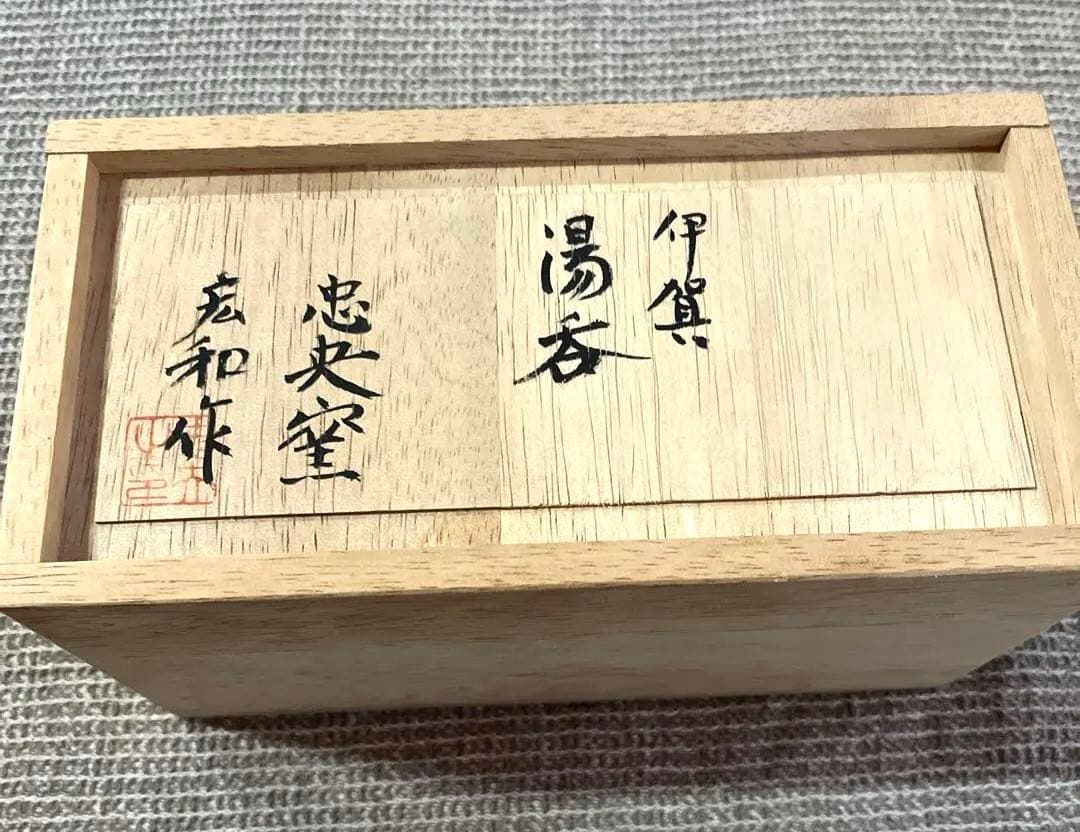 伊賀
湯呑
忠央窯
宏和作